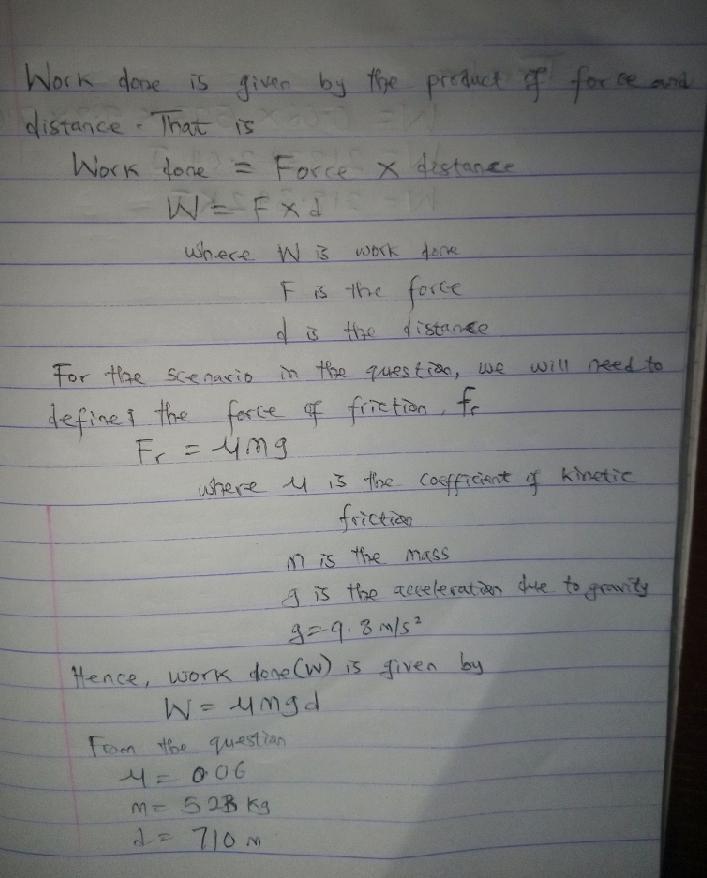 Work done is given by the product of force and
distance. That is
Work done = Force x distance
W = F x d
where W is work done
F is the force
d is the distance
For the scenario in the question, we will need to
define the force of friction, Fr
Fr = μmg
where μ is the coefficient of kinetic
friction
m is the mass
g is the acceleration due to gravity
g = 9.8 m/s²
Hence, work done (W) is given by
W = μmgd
From the question
μ = 0.06
m = kg
d = 710 m